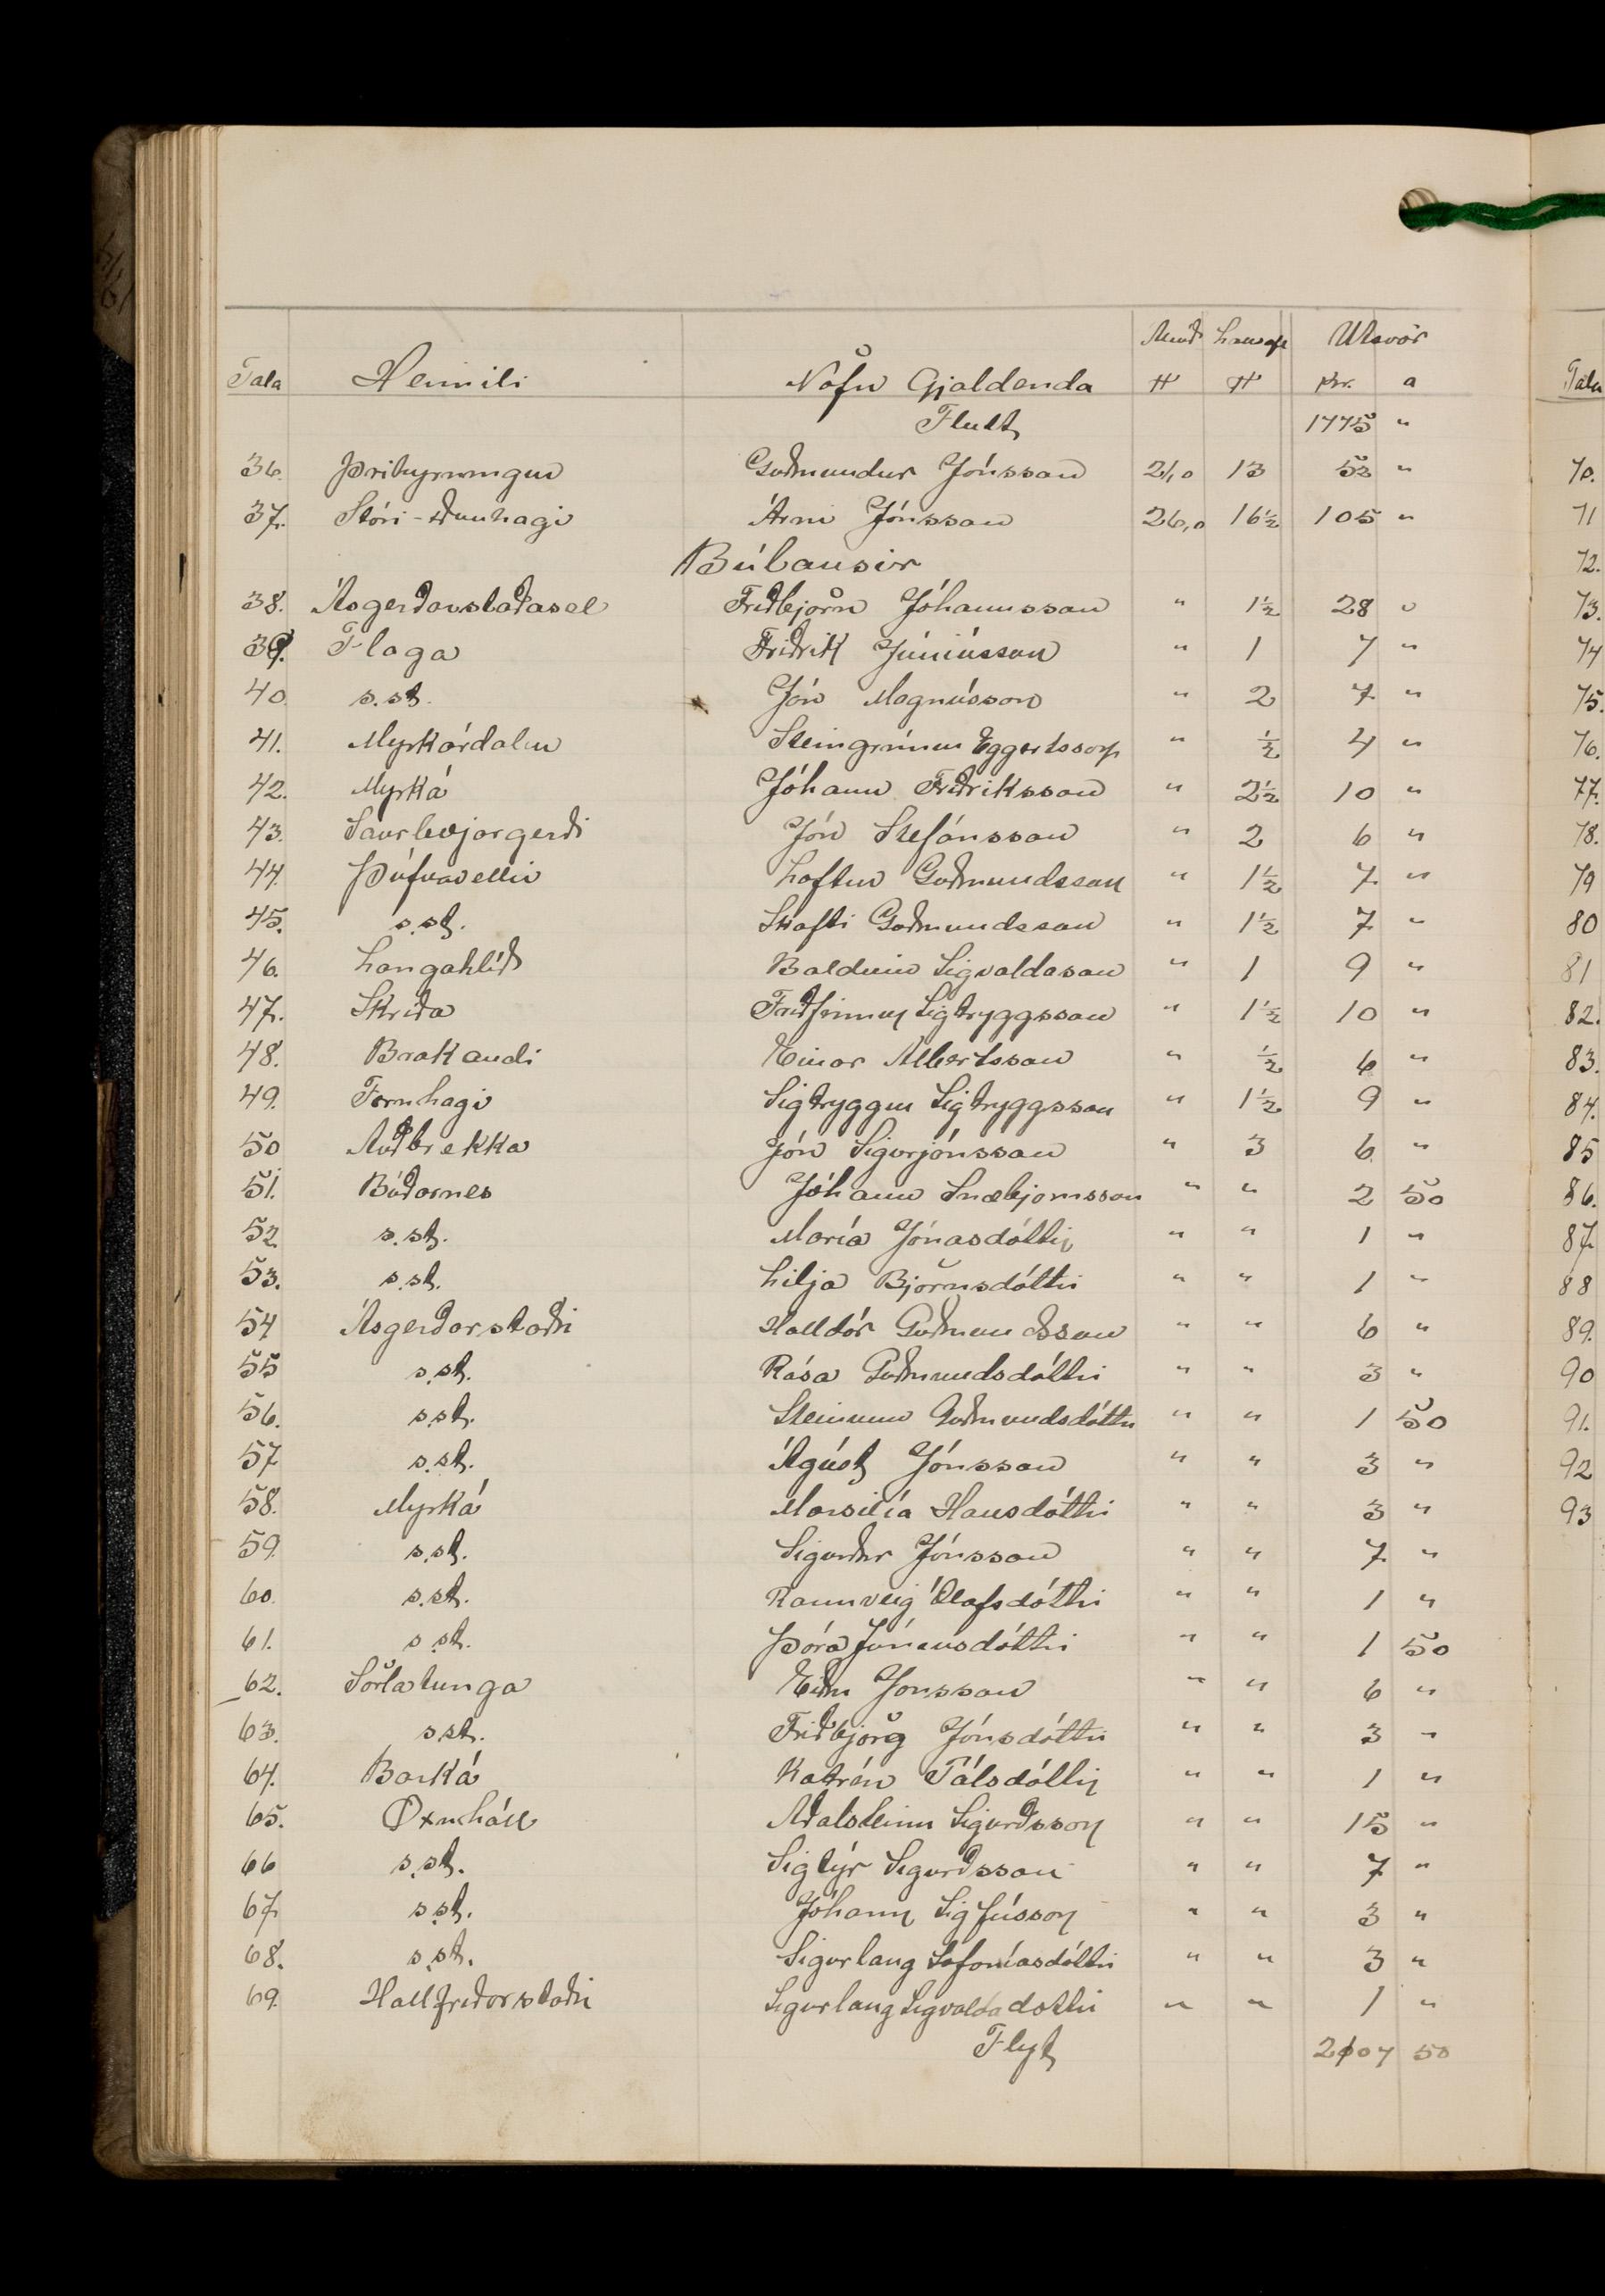 Ábúð Lausafé Utsvör
Tala Heimili Nöfn Gjaldenda H H Kr. a
Flutt 1775 "
36. Þríhyrningur Guðmundur Jónsson 21,0 13 53 "
37. Stóri-Dunhagi Árni Jónsson 26,0 16½ 105 "
Búlausir
38. Ásgerðarstaðasel Friðbjörn Jóhannsson " 1½ 28 "
39. Flaga Friðrik Júníusson " 1 7 "
40 s.st. Jón Magnússon " 2 7 "
41. Myrkárdalur Steingrímur Eggertsson " ½ 4 "
42. Myrká Jóhann Friðriksson " 2½ 10 "
43. Saurbæjargerði Jón Stefánsson " 2 6 "
44. Þúfnavellir Loftur Guðmundsson " 1½ 7 "
45. s.st. Skafti Guðmundsson " 1½ 7 "
46. Langahlíð Baldvin Sigvaldason " 1 9 "
47. Skriða Friðfinnur Sigtryggsson " 1½ 10 "
48. Brakandi Einar Albertsson " ½ 6 "
49. Fornhagi Sigtryggur Sigtryggsson " 1½ 9 "
50 Auðbrekka Jón Sigurjónsson " 3 6 "
51. Búðarnes Jóhann Snæbjornsson " " 2 50
52 s.st. María Jónasdóttir " " 1 "
53. s.st. Lilja Björnsdóttir " " 1 "
54 Ásgerðarstaðir Halldór Guðmundsson " " 6 "
55 s.st. Rósa Guðmundsdóttir " " 3 "
56. s.st. Steinunn Guðmundsdóttir " " 1 50
57 s.st. Ágúst Jónsson " " 3 "
58. Myrká Marsilía Hansdóttir " " 3 "
59. s.st. Sigurður Jónsson " " 7 "
60. s.st. Rannveig Ólafsdóttir " " 1 "
61. s.st. Þóra Júníusdóttir " " 1 50
62. Sörlatunga Eiður Jonsson " " 6 "
63. s.st. Friðbjörg Jónsdóttir " " 3 "
64. Barká Katrín Pálsdóttir " " 1 "
65. Öxnhóll Aðalsteinn Sigurðsson " " 15 "
66 s.st. Sigtýr Sigurðsson " " 7 "
67 s.st. Jóhann Sigfússon " " 3 "
68. s.st. Sigurlaug Sófoníasdóttir " " 3 "
69. Hallfríðarstaðir Sigurlaug Sigvaldadottir " " 1 "
Flyt 2107 50
Tala
70.
71
72.
73.
74
75.
76.
77.
78.
79
80
81
82.
83.
84.
85
86.
87
88
89.
90
91.
92
93